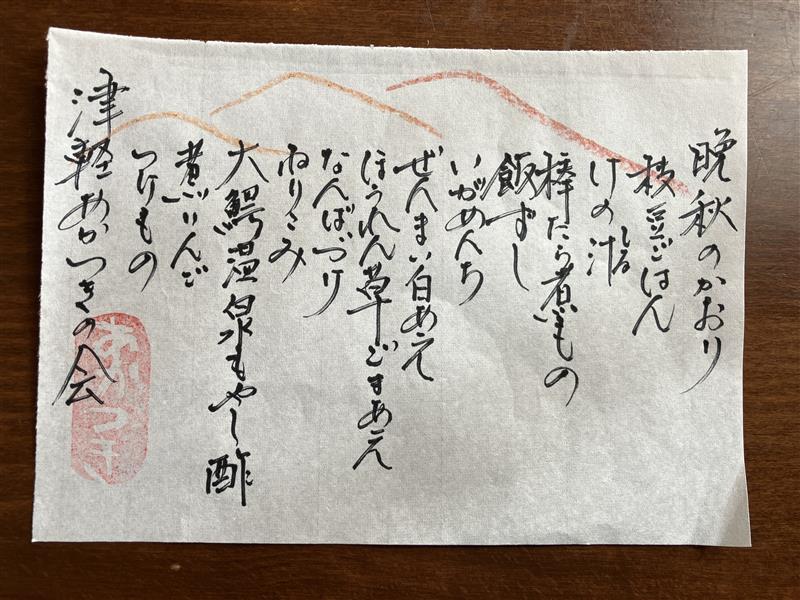 晩秋のかおり
枝豆ごはん
けの汁
しる
棒たら煮もの
飯ずし
いがめんち
ぜんまい白あえ
ほうれん草ごまあえ
なんばづけ
ねりこみ
大鰐温泉もやし酢
煮りんご
つけもの
津軽あかつきの会
あかつき